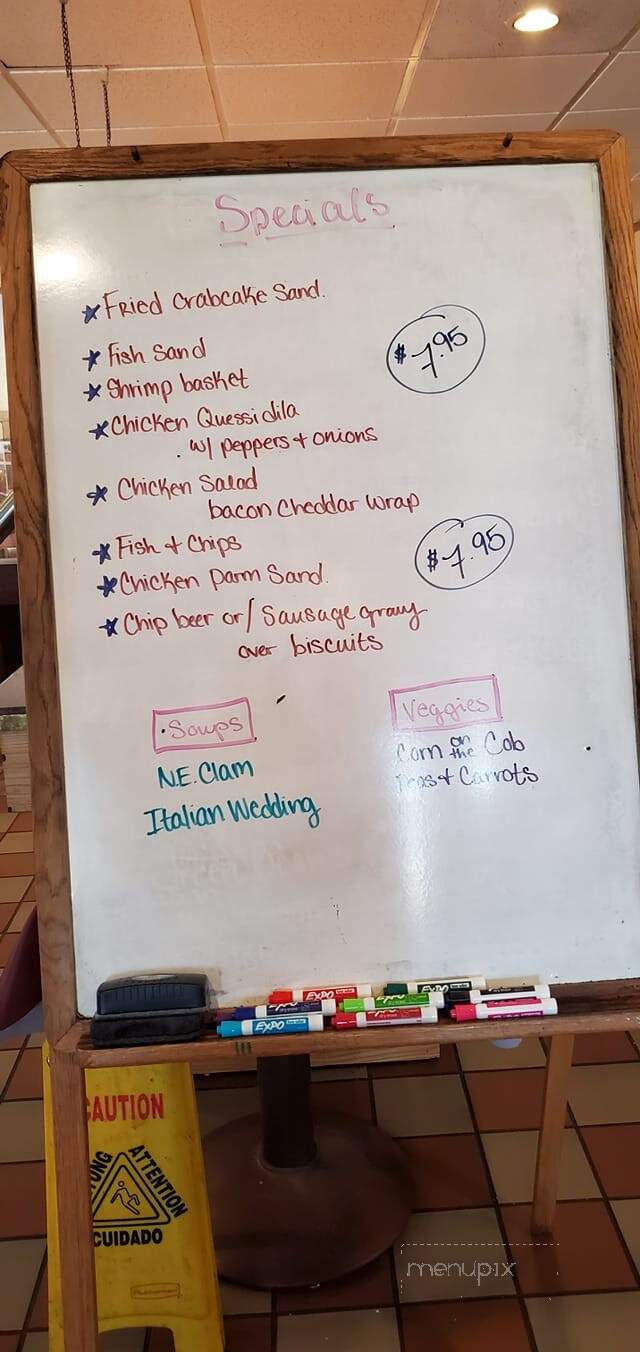 Specials
Fried Crabcake Sand.
Fish Sand
$7.95
Shrimp basket
Chicken Quessidila
w/ peppers + onions
Chicken Salad
bacon Cheddar Wrap
Fish + Chips
$7.95
Chicken Parm Sand.
Chip beer or/ Sausage gravy
over biscuits
Soups
N.E. Clam
Italian Wedding
Veggies
Corn on the Cob
Peas + Carrots
EXPO
EXPO
EXPO
CAUTION
ATTENTION
CUIDADO
Rubbermaid
menupix